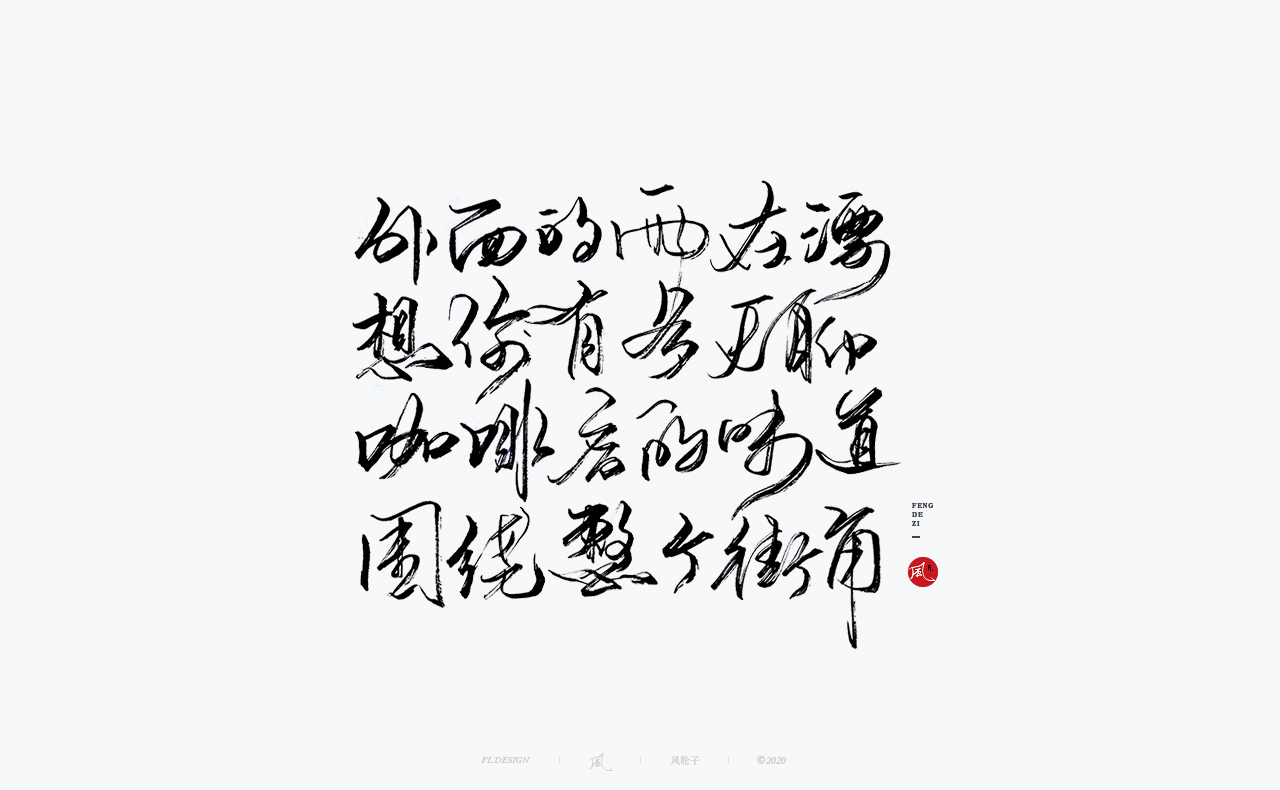 外面的雨在漂
想你有多无聊
咖啡店的味道
围绕整个街角
FENG
DE
ZI
風
FL DESIGN
風
风轮子
©2020